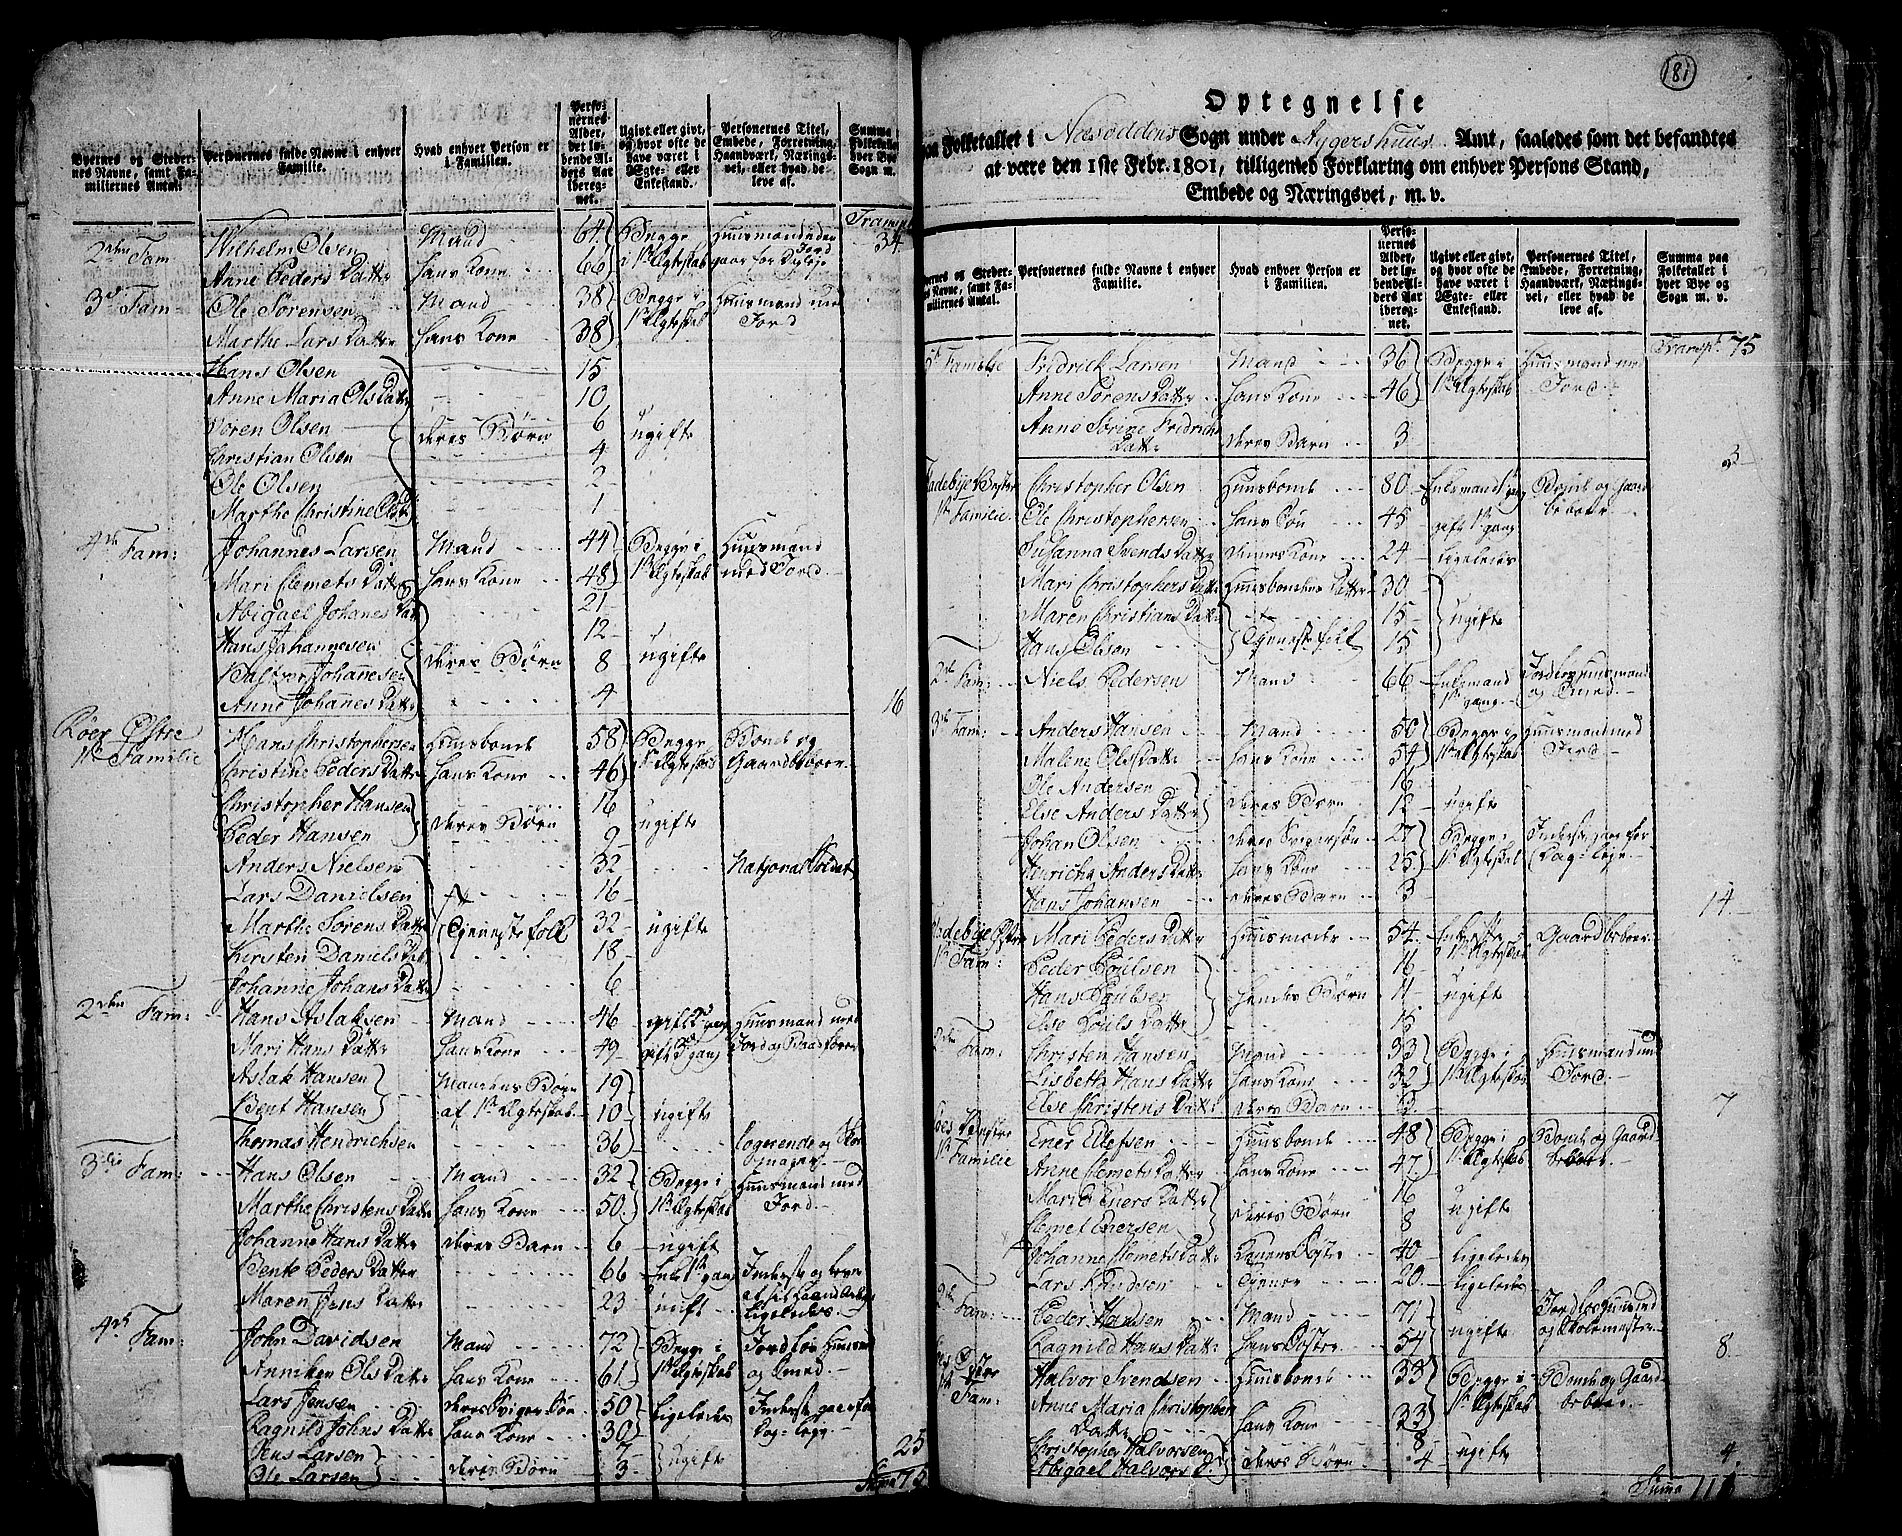 Byernes og Stedernes Navne, samt Familiernes Antal.
Personernes fulde Navne i enhver Familie.
Hvad enhver Person er i Familien.
Personernes Alder, det løbende Alders Aar iberegnet.
Ugivt eller givt, og hvor ofte de have været i Ægte- eller Enkestand.
Personernes Titel, Embede, Forretning, Haandværk, Næringsvei, eller hvad de leve af.
Summa Folketallet hver Bye Sogn m.
34
2den Fam Wilhelm Olsen Mand 64 Begge Huusmand uden Jord
Anne Peders Datter hans Kone 66 i 1ste Ægteskab gaar for Dagleje
3die Fam: Ole Sørensen Mand 38 Begge i Huusmand med
Marthe Lars Datter hans Kone 38 1ste Ægteskab Jord
Hans Olsen 15
Anne Maria Ols Datter 10
Søren Olsen deres Børn 6 ugifte
Christian Olsen 4
Ole Olsen 2
Marthe Christine Ols 1
4de Fam: Johannes Larsen Mand 44 Begge i Huusmand
Mari Clemets Datter hans Kone 48 1ste Ægteskab med Jord
Abigael Johanes Dat 21
Hans Johannesen 12
Johannesen deres Børn 8 ugifte
Anne Johanes Datter 4 16
Røer Østre Hans Christophersen Huusbonde 58 Begge Bonde og
1ste Familie Christine Peders Datter hans Kone 46 1ste Ægteskab Gaardbeboer
Christopher Hansen 16
Peder Hansen deres Børn 9 ugifte
Anders Nielsen 32 National Soldat
Lars Danielsen 16
Marthe Sørens Datter Tjenestefolk 32 ugifte
Kirsten Daniels Dat 18
Johanne Johans Datter 6
2den Fam: Hans Aslaksen Mand 46 gift gang Huusmand med
Mari Hans Datter hans Kone 49 gift gang Jord og
Aslak Hansen Mandens Børn 19
Bent Hansen af 1ste Ægteskab 10 ugifte
Thomas Hendrichsen 36 logerende og
3die Fam: Hans Olsen Mand 32 Begge i Huusmand med
Marthe Christens Datter hans Kone 50 1ste Ægteskab Jord
Johanne Hans Datter deres Barn 6 ugift
Bente Peders Datter 66 Enke 1ste gang Inderste og lever
Maren Jens Datter 23 ugift af sit Haandarbeide ligeledes
4de Fam: John Davidsen Mand 72 Begge i Jordløs Huusmand
Anniken Ols Datter hans Kone 61 1ste Ægteskab og Smed
Lars Jensen deres Sviger Søn 50 ligeledes Inderste gaar for
Ragnild Johns Datter hans Kone 30 Dagleje
Jens Larsen 7
Ole Larsen deres Børn 3 ugifte 25
Summa 75
181
Optegnelse
paa Folketallet i Næsoddens Sogn under Aggershuus Amt, saaledes som det befandtes
at være den 1ste Febr. 1801, tilligemed Forklaring om enhver Persons Stand,
Embede og Næringsvei, m. v.
Byernes og Stedernes Navne, samt Familiernes Antal.
Personernes fulde Navne i enhver Familie.
Hvad enhver Person er i Familien.
Personernes Alder, det løbende Alders Aar iberegnet.
Ugivt eller givt, og hvor ofte de have været i Ægte- eller Enkestand.
Personernes Titel, Embede, Forretning, Haandværk, Næringsvei, eller hvad de leve af.
Summa paa Folketallet i hver Bye og Sogn m. v.
Transpt. 75
Familie Fredrick Larsen Mand 36 Begge i Huusmand med
Anne Sørens Datter hans Kone 46 1ste Ægteskab Jord
Anne Sørine Fredrichs Datter deres Barn 3 3
Christopher Olsen Huusbonde 80 Enkemand Bonde og Gaard
1ste Familie Ole Christophersen hans Søn 45 gift 1ste gang beboer
Susanna Svends Datter dennes Kone 24 ligeledes
Mari Christophers Datter Huusbondens Datter 30
Maren Christians Datter 15 ugifte
Hans Olson Tjenestefolk 15
2de Fam: Niels Pedersen Mand 66 Enkemand 1ste gang Jordløs Huusmand og Smed
3die Fam: Anders Hansen Mand 50 Begge i Huusmand med
Malene Ols Datter hans Kone 54 1ste Ægteskab Jord
Ole Andersen 16
Else Anders Datter deres Børn 12 ugifte
Johan Olsen deres Svigersøn 27 Begge i Inderste gaar for
Henricha Anders Datter hans Kone 25 1ste Ægteskab Dag-leje
Hans Johansen deres Barn 3 14
Mari Peders Datter Huusmoder 54 Enke efter Gaardbeboer
1ste Fam: Peder Poulsen 16 1ste Ægteskab
Hans Poulsen hendes Børn 11 ugifte
Else Pouls Datter 15
2den Fam: Christen Hansen Mand 33 Begge i Huusmand med
Lisbeth Hans Datter hans Kone 32 1ste Ægteskab Jord
Else Christens Datter deres Barn 7
Ener Ellefsen Huusbonde 48 Begge i Bonde og Gaard
1ste Familie Anne Clemets Datter hans Kone 47 1ste Ægteskab beboer
Marie Eners Datter 16
Clemet Enersen deres Børn 8 ugifte
Johanne Clemets Datter Konens Søster 40 ligeledes
Lars Knudsen Tjener 20 ligeledes
2de Fam: Peder Hansen Mand 71 Jordløs Huusmand
Ragnild Hans Datter hans Søster 54 ugifte og Skolemester 8
Østre Halvor Svendsen Huusbonde 33 Begge i Bonde og Gaard
1ste Fam: Anne Maria Christophers Datter hans Kone 33 1ste Ægteskab beboer
Christopher Halvorsen 8
Abigael Halvors D. deres Børn 4 ugifte 4
Summa 111